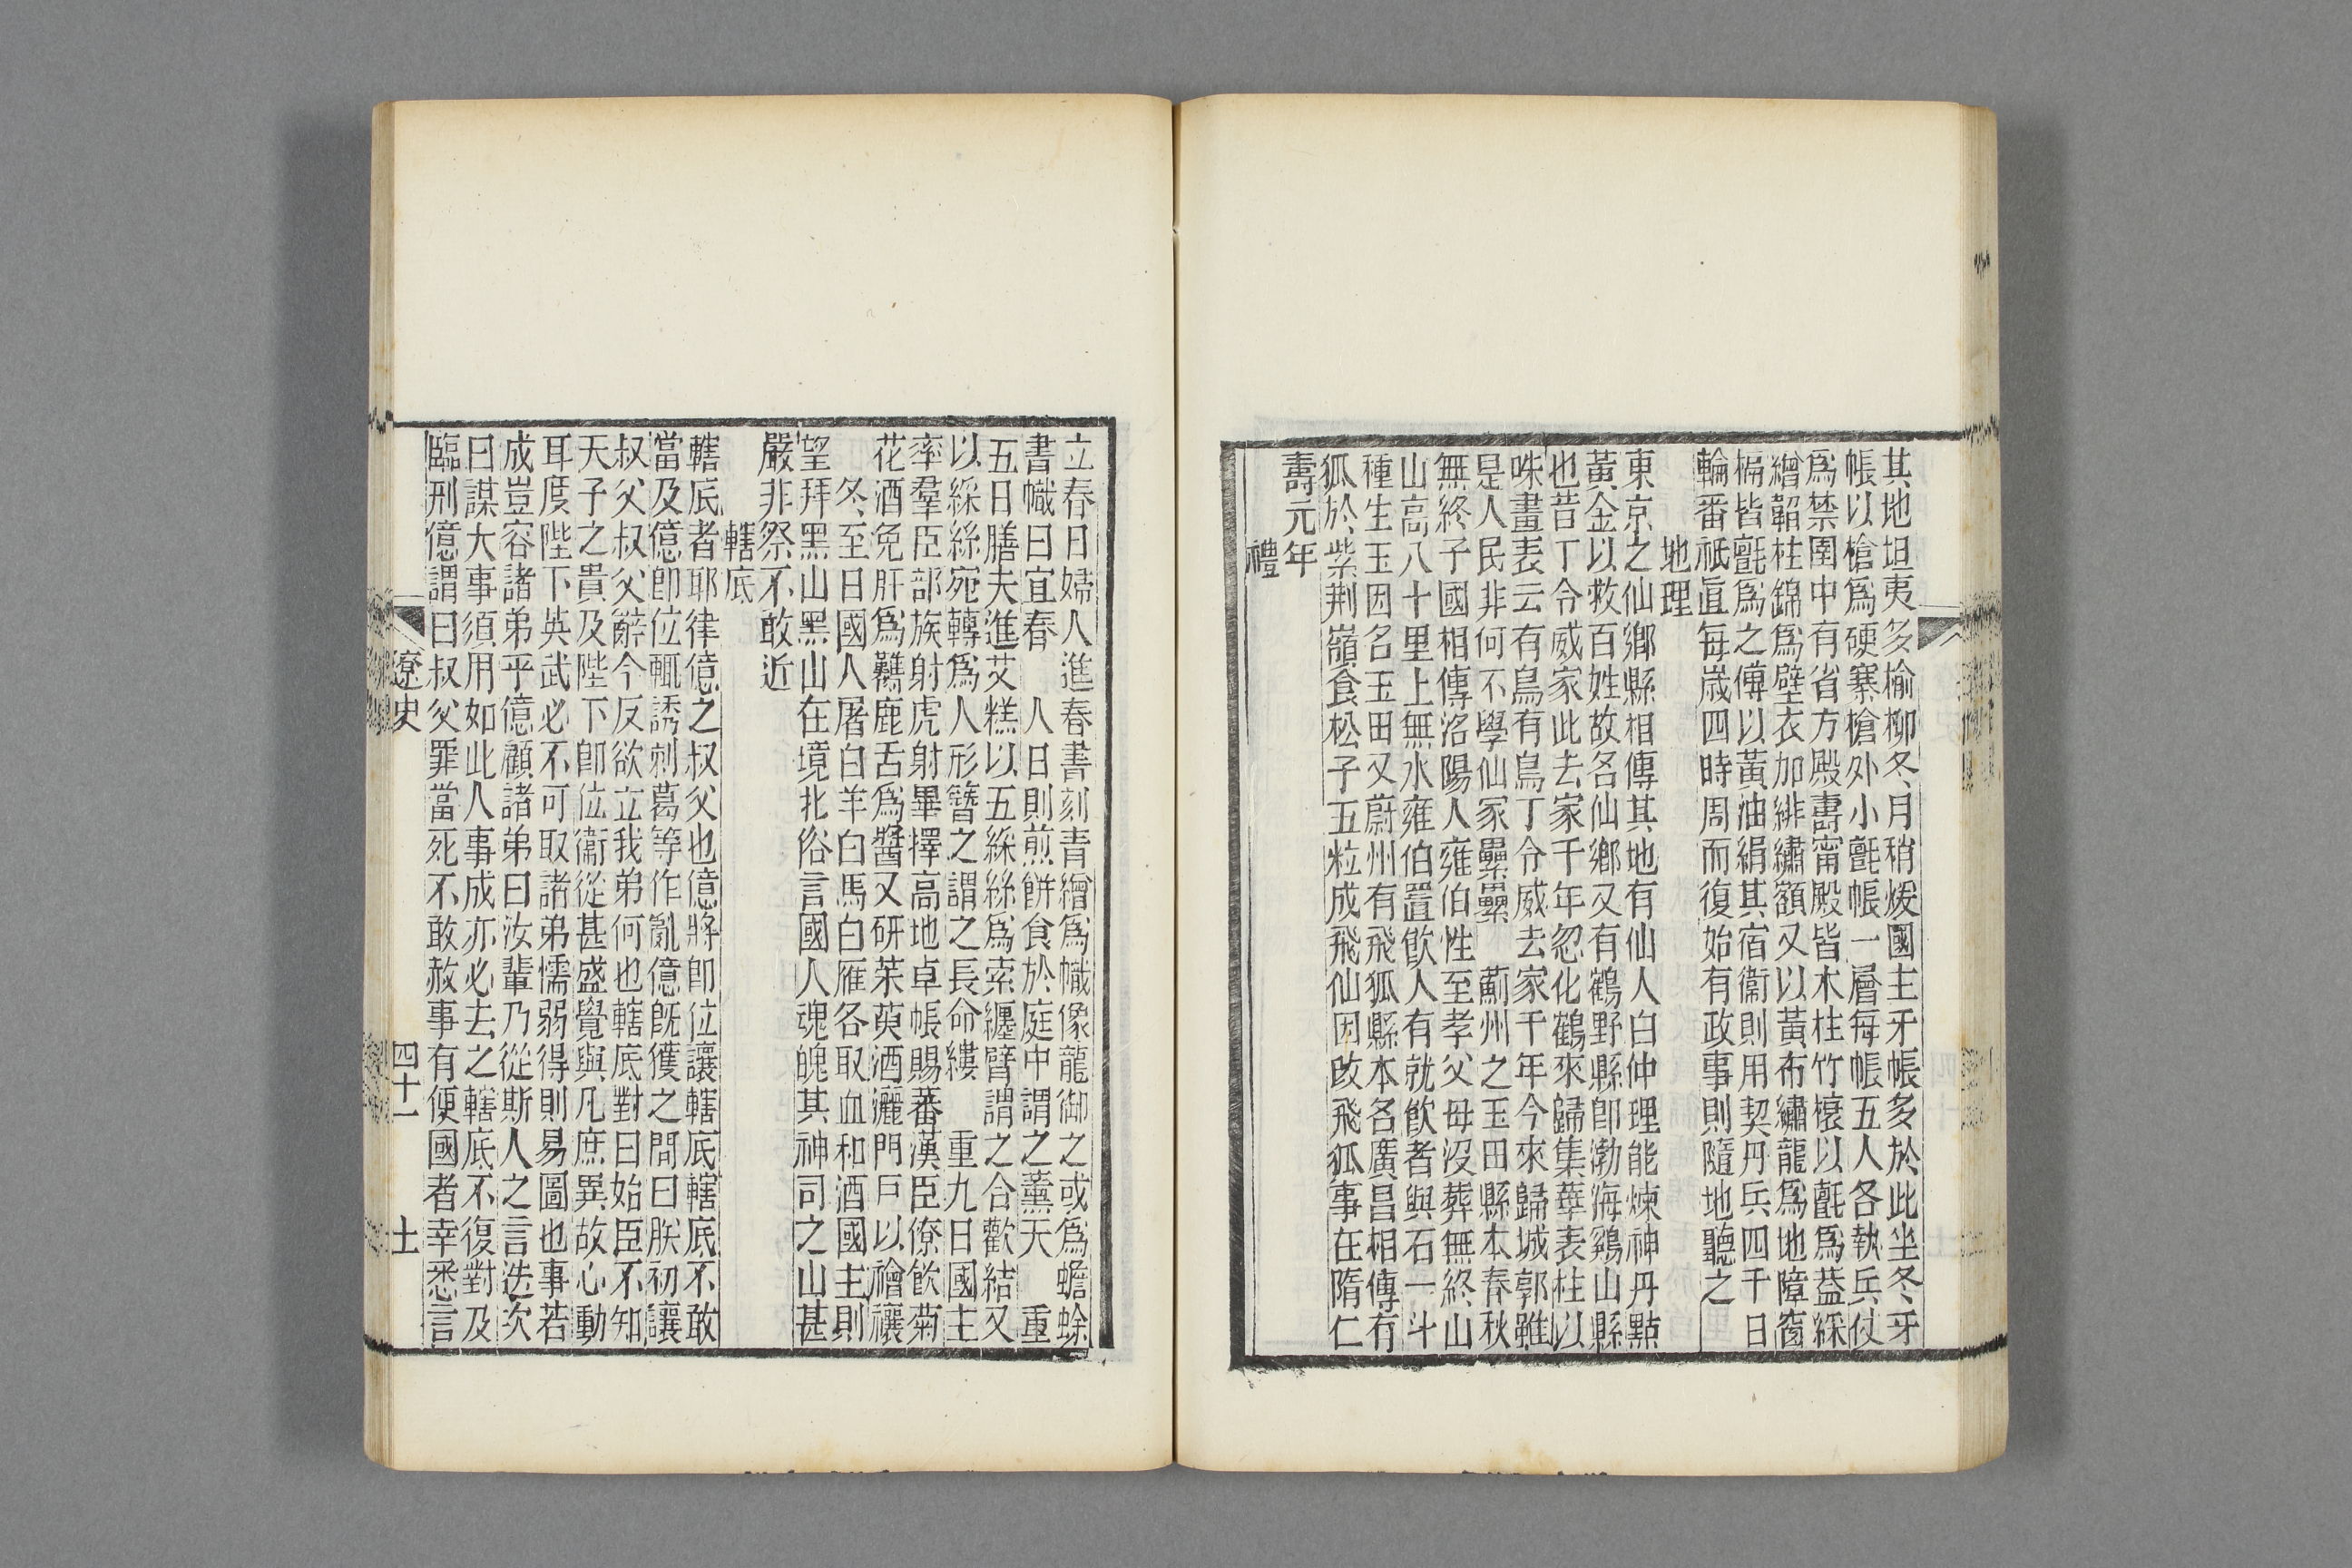 其地坦夷多榆柳冬月稍煖國主牙帳多於此坐冬牙
帳以槍爲硬寨槍外小氊帳一層每帳五人各執兵仗
爲禁圍中有省方殿壽甯殿皆木柱竹榱以氊爲葢綵
繒韜柱錦爲壁衣加緋繡額又以黃布繡龍爲地障窗
槅皆氊爲之傅以黃油絹其宿衞則用契丹兵四千日
輪番祇直每歲四時周而復始有政事則隨地聽之
地理
東京之仙鄉縣相傳其地有仙人白仲理能煉神丹點
黃金以救百姓故名仙鄉又有鶴野縣卽渤海鷄山縣
也昔丁令威家此去家千年忽化鶴來歸集華表柱以
咮畫表云有鳥有鳥丁令威去家千年今來歸城郭雖
是人民非何不學仙冢纍纍　薊州之玉田縣本春秋
無終子國相傳洛陽人雍伯性至孝父母沒葬無終山
山高八十里上無水雍伯置飮人有就飮者與石一斗
種生玉因名玉田又蔚州有飛狐縣本名廣昌相傳有
狐於紫荆嶺食松子五粒成飛仙因改飛狐事在隋仁
壽元年
禮
立春日婦人進春書刻青繒爲幟像龍御之或爲蟾蜍
書幟曰宜春　人日則煎餅食於庭中謂之薰天　重
五日膳夫進艾糕以五綵絲爲索纏臂謂之合歡結又
以綵絲宛轉爲人形簪之謂之長命縷　重九日國主
率羣臣部族射虎射畢擇高地卓帳賜蕃漢臣僚飮菊
花酒免肝爲鸗鹿舌爲醬又研茱萸酒灑門戶以禬禳
冬至日國人屠白羊白馬白雁各取血和酒國主則
望拜黑山黑山在境北俗言國人魂魄其神司之山甚
嚴非祭不敢近
轄底
轄底者耶律億之叔父也億將卽位讓轄底轄底不敢
當及億卽位輒誘刺葛等作亂億旣獲之問曰朕初讓
叔父叔父辭今反欲立我弟何也轄底對曰始臣不知
天子之貴及陛下卽位衞從甚盛覺與凡庶異故心動
耳度陛下英武必不可取諸弟懦弱得則易圖也事若
成豈容諸弟乎億顧諸弟曰汝輩乃從斯人之言迭次
曰謀大事須用如此人事成亦必去之轄底不復對及
臨刑億謂曰叔父罪當死不敢赦事有便國者幸悉言
遼史　四十一　士